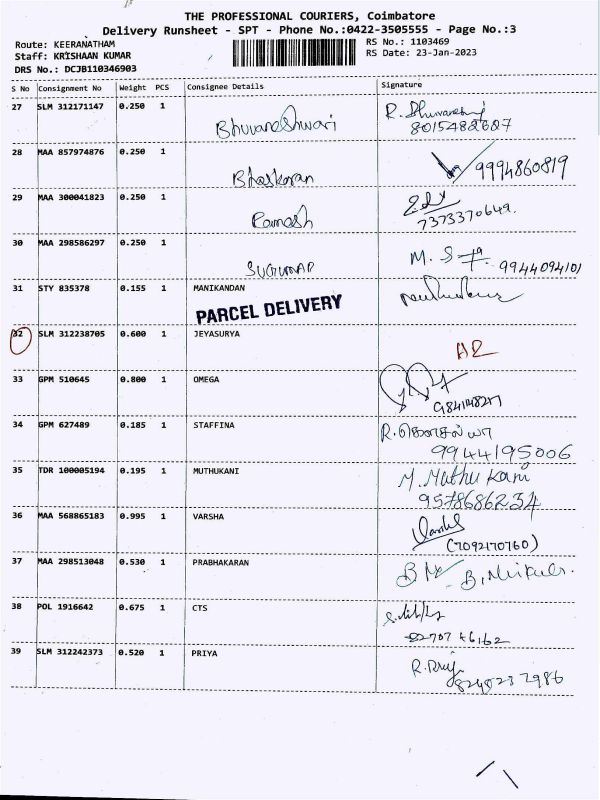 THE PROFESSIONAL COURIERS, Coimbatore
Delivery Runsheet - SPT - Phone No.:0422-3505555 - Page No.:3
Route: KEERANATHAM
RS No.: 1103469
Staff: KRISHAAN KUMAR
RS Date: 23-Jan-2023
DRS No.: DCJB110346903
S No Consignment No Weight PCS Consignee Details Signature
27 SLM 312171147 0.250 1 Bhuvaneshwari R. Bhuvaneshwari
8015482627
28 MAA 857974876 0.250 1 Bhaskaran 9994860819
29 MAA 300041823 0.250 1 Ramesh 7373370649.
30 MAA 298586297 0.250 1 SUGUMAR M. S 9944094101
31 STY 835378 0.155 1 MANIKANDAN
PARCEL DELIVERY
32 SLM 312238705 0.600 1 JEYASURYA AR
33 GPM 510645 0.800 1 OMEGA
34 GPM 627489 0.185 1 STAFFINA R.
9944195006
35 TDR 100005194 0.195 1 MUTHUKANI M. Muthu Kani
9578686234
36 MAA 568865183 0.995 1 VARSHA
(7092170760)
37 MAA 298513048 0.530 1 PRABHAKARAN
38 POL 1916642 0.675 1 CTS
82707 46162
39 SLM 312242373 0.520 1 PRIYA R. Priy
8240237986